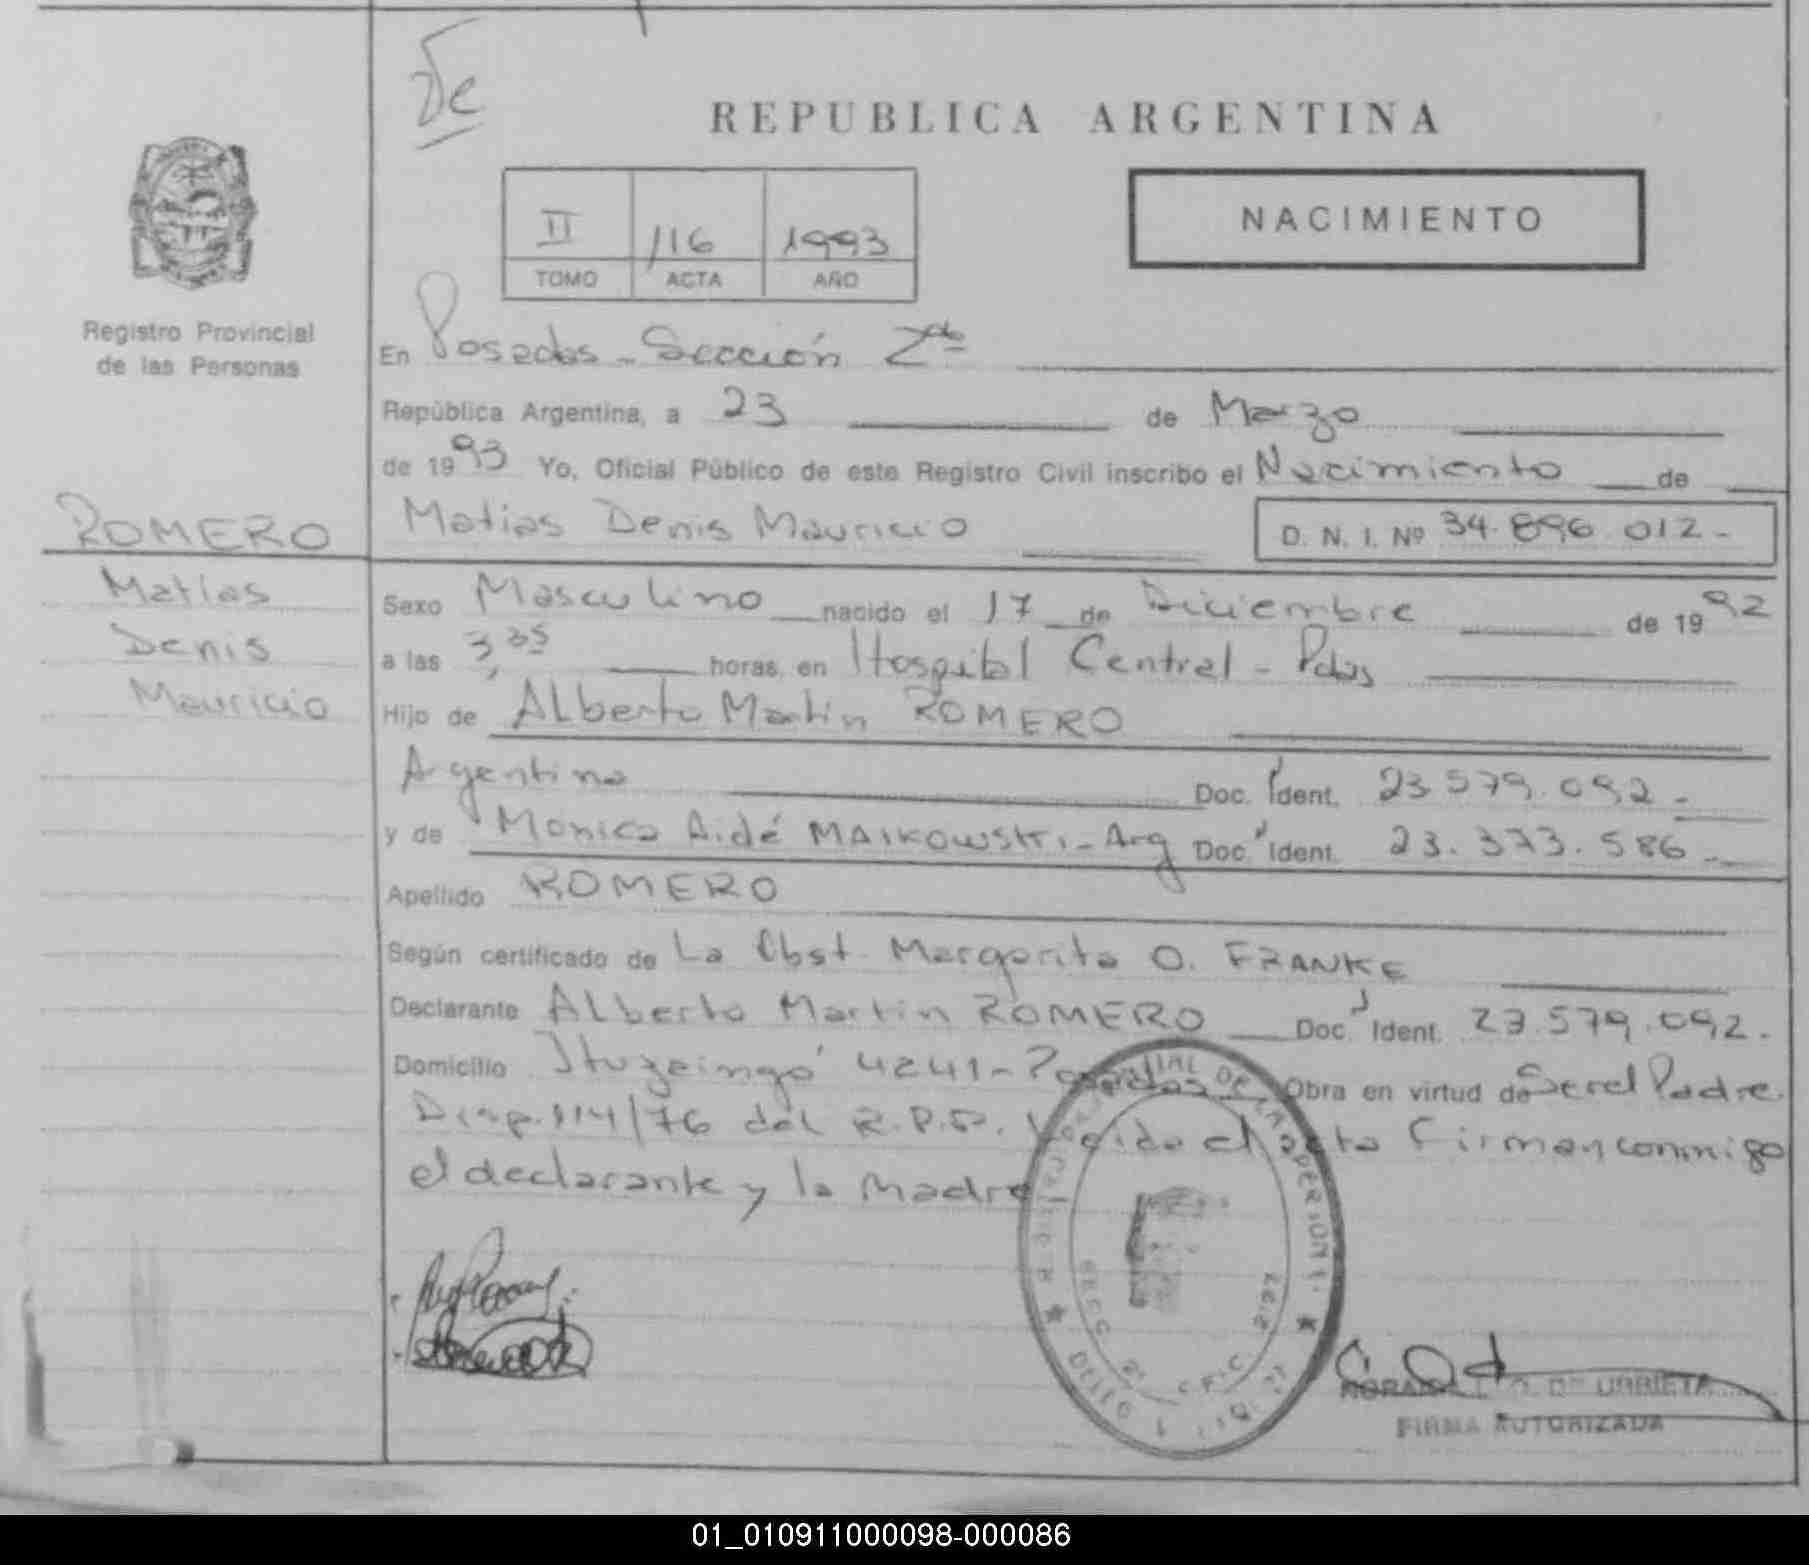 De
REPUBLICA ARGENTINA
II 116 1993
TOMO ACTA AÑO
NACIMIENTO
Registro Provincial
de las Personas
En Posadas - Sección 2da
República Argentina, a 23 de Marzo
de 1993 Yo, Oficial Público de este Registro Civil inscribo el Nacimiento de
ROMERO
Matias Denis Mauricio D. N. I. Nº 34.896.012-
Matías
Denis
Mauricio
Sexo Masculino nacido el 17 de Diciembre de 1992
a las 3,35 horas, en Hospital Central - Pdas
Hijo de Alberto Martin ROMERO
Argentina Doc. Ident. 23.579.092-
y de Monica Aidé MAIKOWSKI - Arg Doc. Ident. 23.373.586-
Apellido ROMERO
Según certificado de La Obst. Margarita O. FRANKE
Declarante Alberto Martin ROMERO Doc. Ident. 23.579.092.
Domicilio Ituzaingó 4241 - Posadas Obra en virtud de Ser el Padre
Disp. 114/76 del R.P.P. Leida el acta Firman conmigo
el declarante y la Madre
DE LAS PERSONAS
DE URRIETA
FIRMA AUTORIZADA
01_010911000098-000086